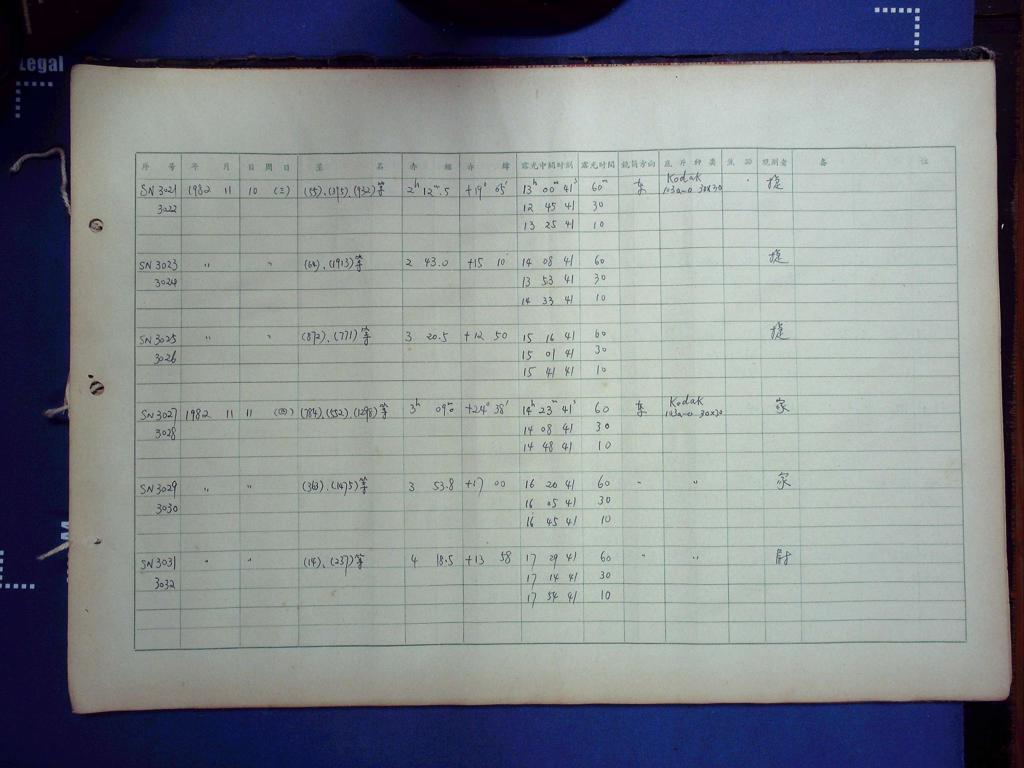 Legal
序 号 年 月 日 周 日 星 名 赤 经 赤 纬 露光中间时刻 露光时间 镜筒方向 底片种类 焦距 观测者 备 注
SN 3021 1982 11 10 (三) (55)、(175)、(932)等 2h 12m.5 +19° 05′ 13h 00m 41s 60m 东 Kodak 103a-o 30x30 捷
3022 12 45 41 30
13 25 41 10
SN 3023 〃 〃 (64)、(1913)等 2 43.0 +15 10 14 08 41 60 捷
3024 13 53 41 30
14 33 41 10
SN 3025 〃 〃 (872)、(771)等 3 20.5 +12 50 15 16 41 60 捷
3026 15 01 41 30
15 41 41 10
SN 3027 1982 11 11 (四) (784)、(552)、(1298)等 3h 09m.0 +24° 38′ 14h 23m 41s 60 东 Kodak 103a-o 30x30 家
3028 14 08 41 30
14 48 41 10
SN 3029 〃 〃 (363)、(1475)等 3 53.8 +17 00 16 20 41 60 〃 〃 家
3030 16 05 41 30
16 45 41 10
SN 3031 〃 〃 (14)、(237)等 4 18.5 +13 58 17 29 41 60 〃 〃
3032 17 14 41 30
17 54 41 10